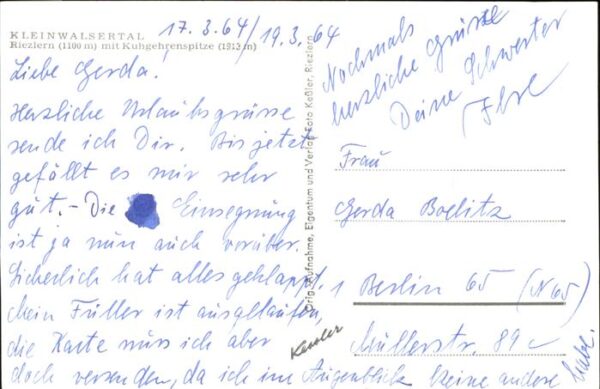 KLEINWALSERTAL
Riezlern (1100 m) mit Kuhgehrenspitze (1912 m)
17.3.64/19.3.64
Liebe Gerda!
Herzliche Urlaubsgrüsse
sende ich Dir. Bis jetzt
gefällt es mir sehr
gut. - Die Einsegnung
ist ja nun auch vorüber.
Sicherlich hat alles geklappt.
Mein Füller ist ausgelaufen,
die Karte muss ich aber
doch versenden, da ich im Augenblick keine andere
habe.
Nochmals
herzliche Grüsse
Deine Schwester
Ilse
Orig.-Aufnahme, Eigentum und Verlag Foto Keßler, Riezlern
Kessler
Frau
Gerda
1 Berlin 65 (N65)
Müllerstr. 89c